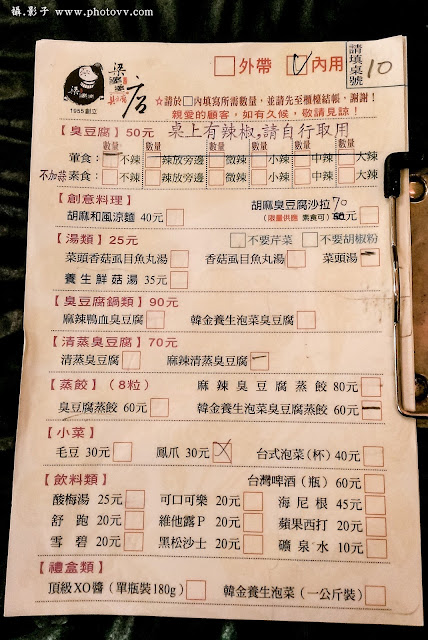 攝.影子 www.photovv.com
梁
店
1955創立
□外帶 □內用
請填桌號
10
☆請於□內填寫所需數量，並請先至櫃檯結帳，謝謝！
親愛的顧客，如有久候，敬請見諒！
【臭豆腐】50元 桌上有辣椒,請自行取用
數量 數量 數量 數量 數量 數量
葷食：□不辣□辣放旁邊□微辣□小辣□中辣□大辣
不加蒜 素食：□不辣□辣放旁邊□微辣□小辣□中辣□大辣
【創意料理】 胡麻臭豆腐沙拉70
胡麻和風涼麵 40元□ (限量供應 素食可) 元□
【湯類】25元 □不要芹菜 □不要胡椒粉
菜頭香菇虱目魚丸湯□ 香菇虱目魚丸湯□ 菜頭湯□
養生鮮菇湯 35元□
【臭豆腐鍋類】90元
麻辣鴨血臭豆腐□ 韓金養生泡菜臭豆腐□
【清蒸臭豆腐】70元
清蒸臭豆腐□ 麻辣清蒸臭豆腐□
【蒸餃】(8粒) 麻辣臭豆腐蒸餃 80元□
臭豆腐蒸餃 60元□ 韓金養生泡菜臭豆腐蒸餃 60元□
【小菜】
毛豆 30元□ 鳳爪 30元□ 台式泡菜(杯) 40元□
【飲料類】 台灣啤酒(瓶) 60元□
酸梅湯 25元□ 可口可樂 20元□ 海尼根 45元□
舒跑 20元□ 維他露P 20元□ 蘋果西打 20元□
雪碧 20元□ 黑松沙士 20元□ 礦泉水 10元□
【禮盒類】
頂級XO醬(單瓶裝180g)□ 韓金養生泡菜(一公斤裝)□